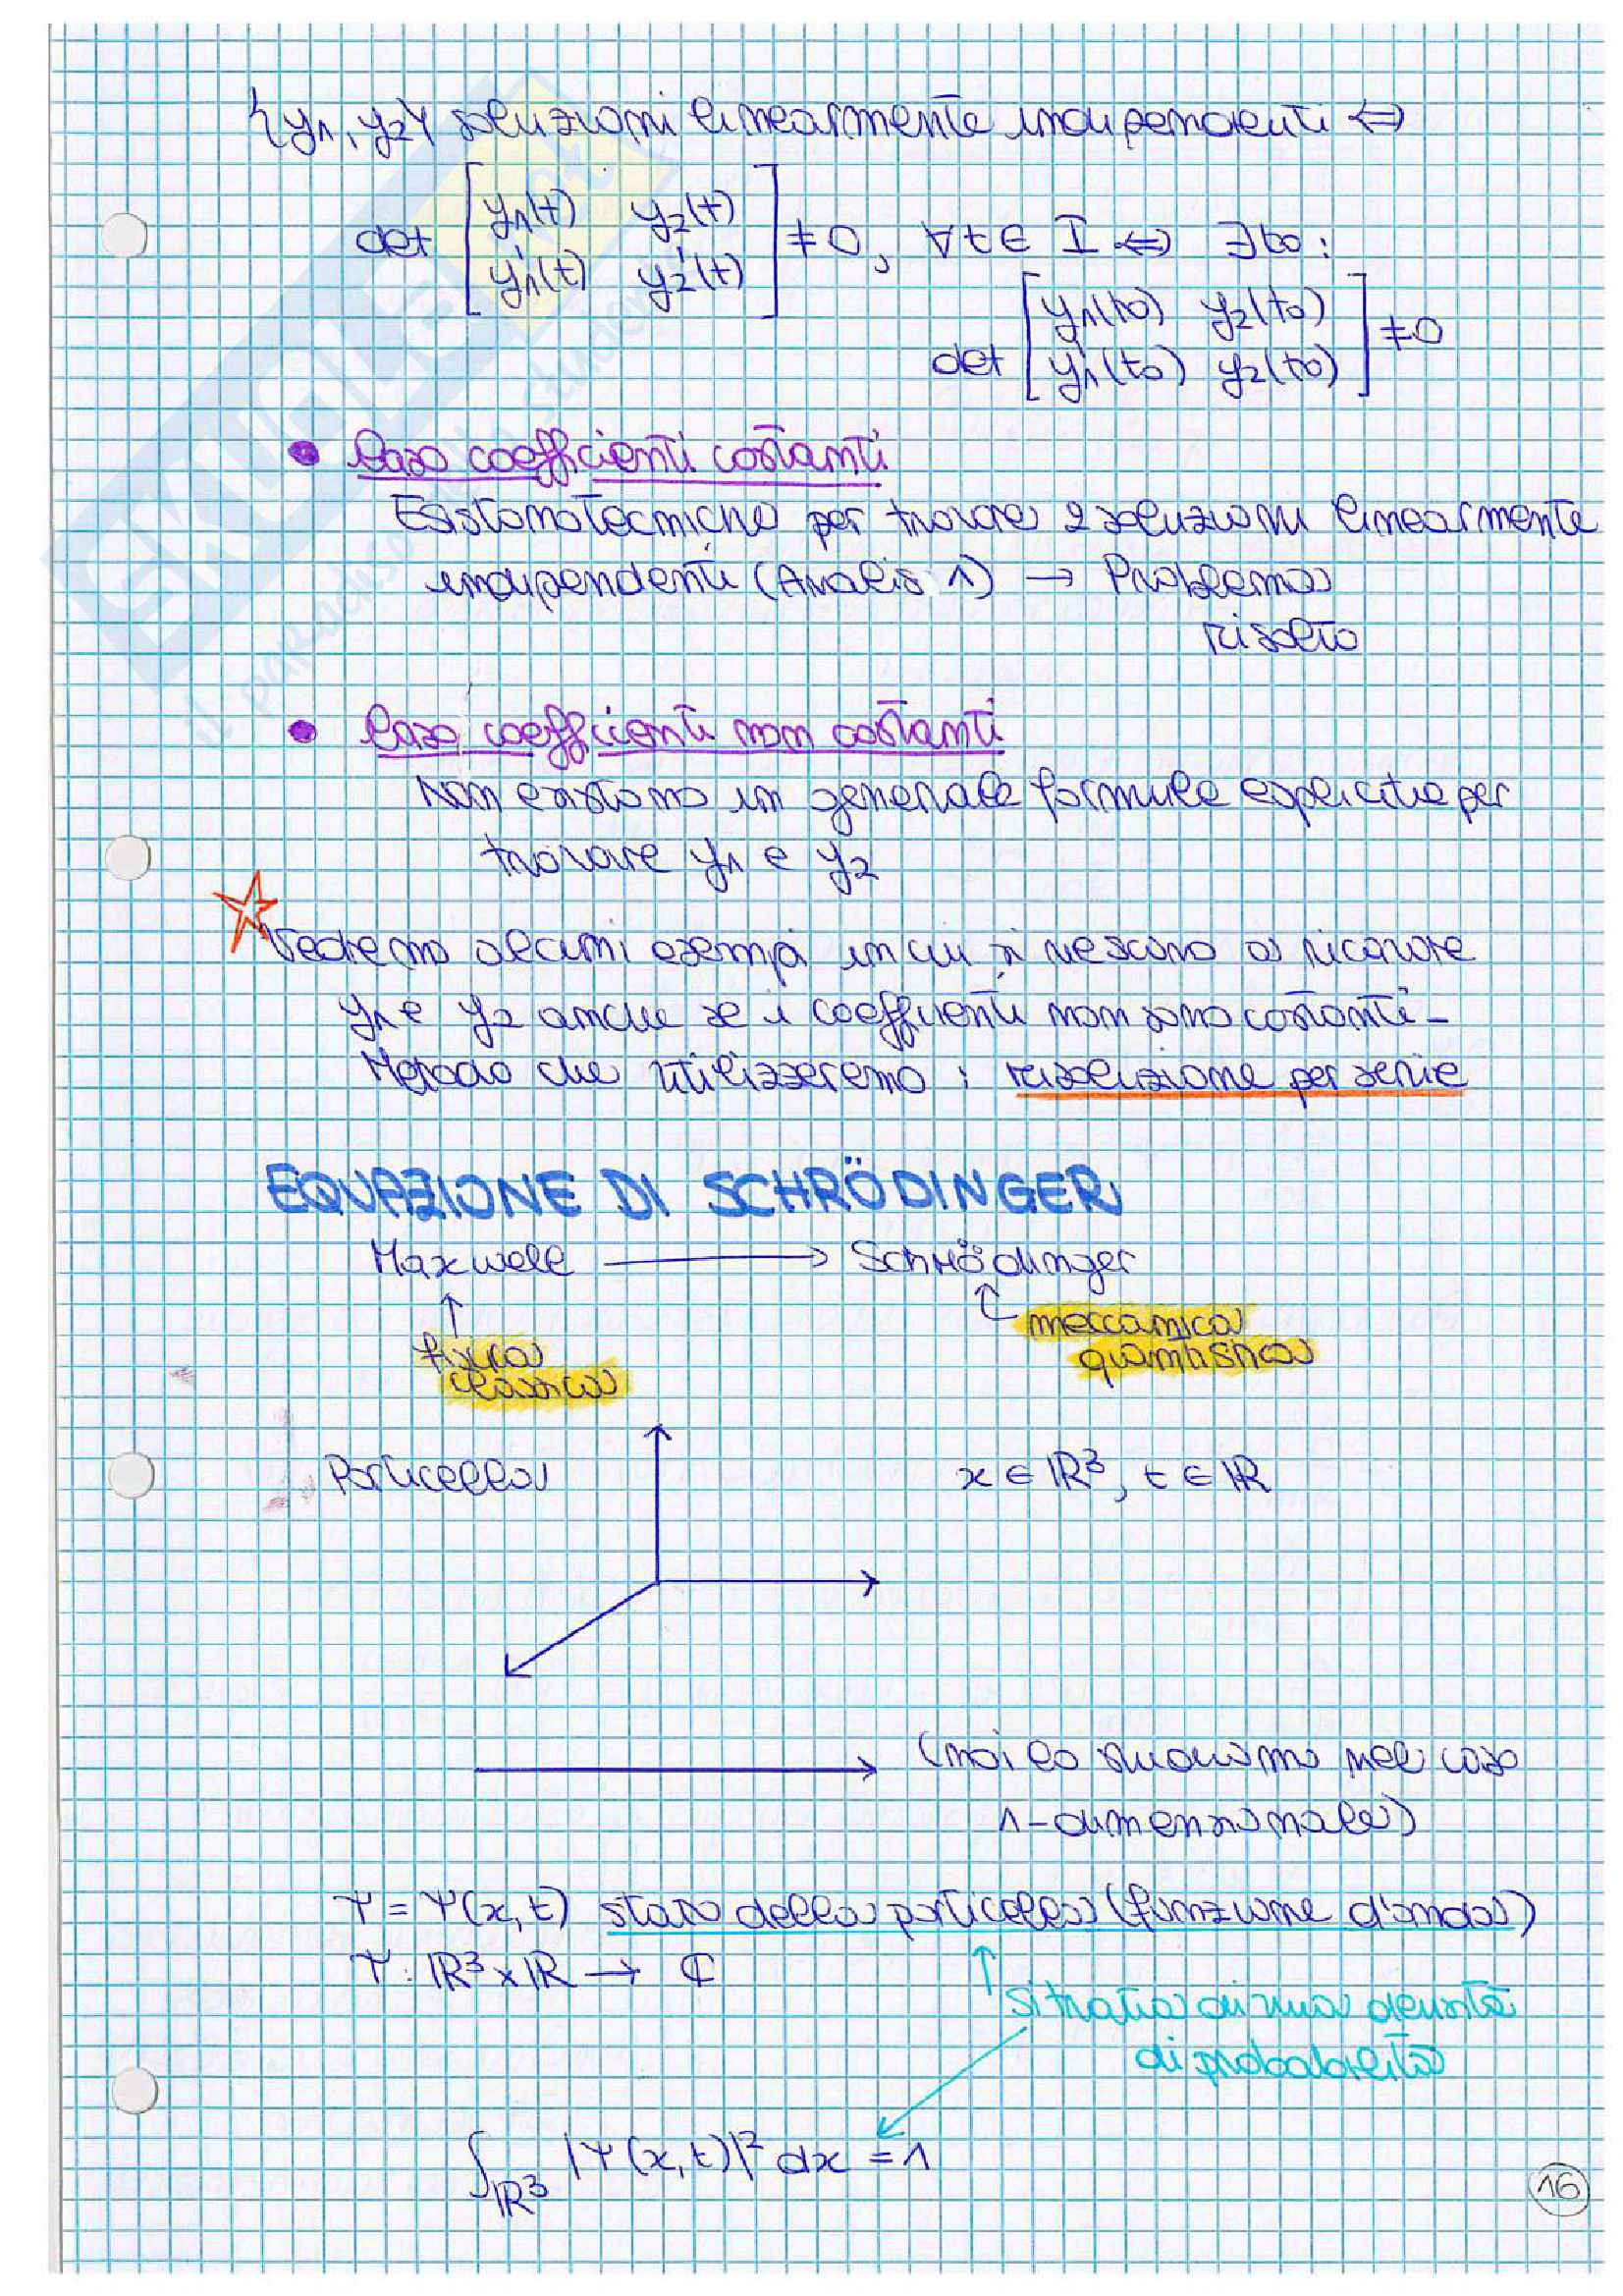 {y1, y2} soluzioni linearmente indipendenti ⇔
det [y1(t) y2(t)
y1'(t) y2'(t)] ≠ 0, ∀t∈ I ⇔ ∃t0 :
det [y1(t0) y2(t0)
y1'(t0) y2'(t0)] ≠ 0
• Caso coefficienti costanti
Esistono tecniche per trovare 2 soluzioni linearmente
indipendenti (Analisi 1) → Problema
risolto
• Caso coefficienti non costanti
Non esistono in generale formule esplicite per
trovare y1 e y2
☆ Vedremo alcuni esempi in cui si riescono a ricavare
y1 e y2 anche se i coefficienti non sono costanti-
Metodo che utilizzeremo : risoluzione per serie
EQUAZIONE DI SCHRÖDINGER
Maxwell → Schrödinger
↑ fisica classica
↑ meccanica quantistica
Particella
x ∈ ℝ³, t ∈ ℝ
(noi lo studiamo nel caso
1-dimensionale)
Ψ = Ψ(x,t) stato della particella (funzione d'onda)
Ψ: ℝ³×ℝ → ℂ
Si tratta di una densità
di probabilità
∫ℝ³ |Ψ(x,t)|² dx = 1
16
SKUOLA
il paradiso dello studente